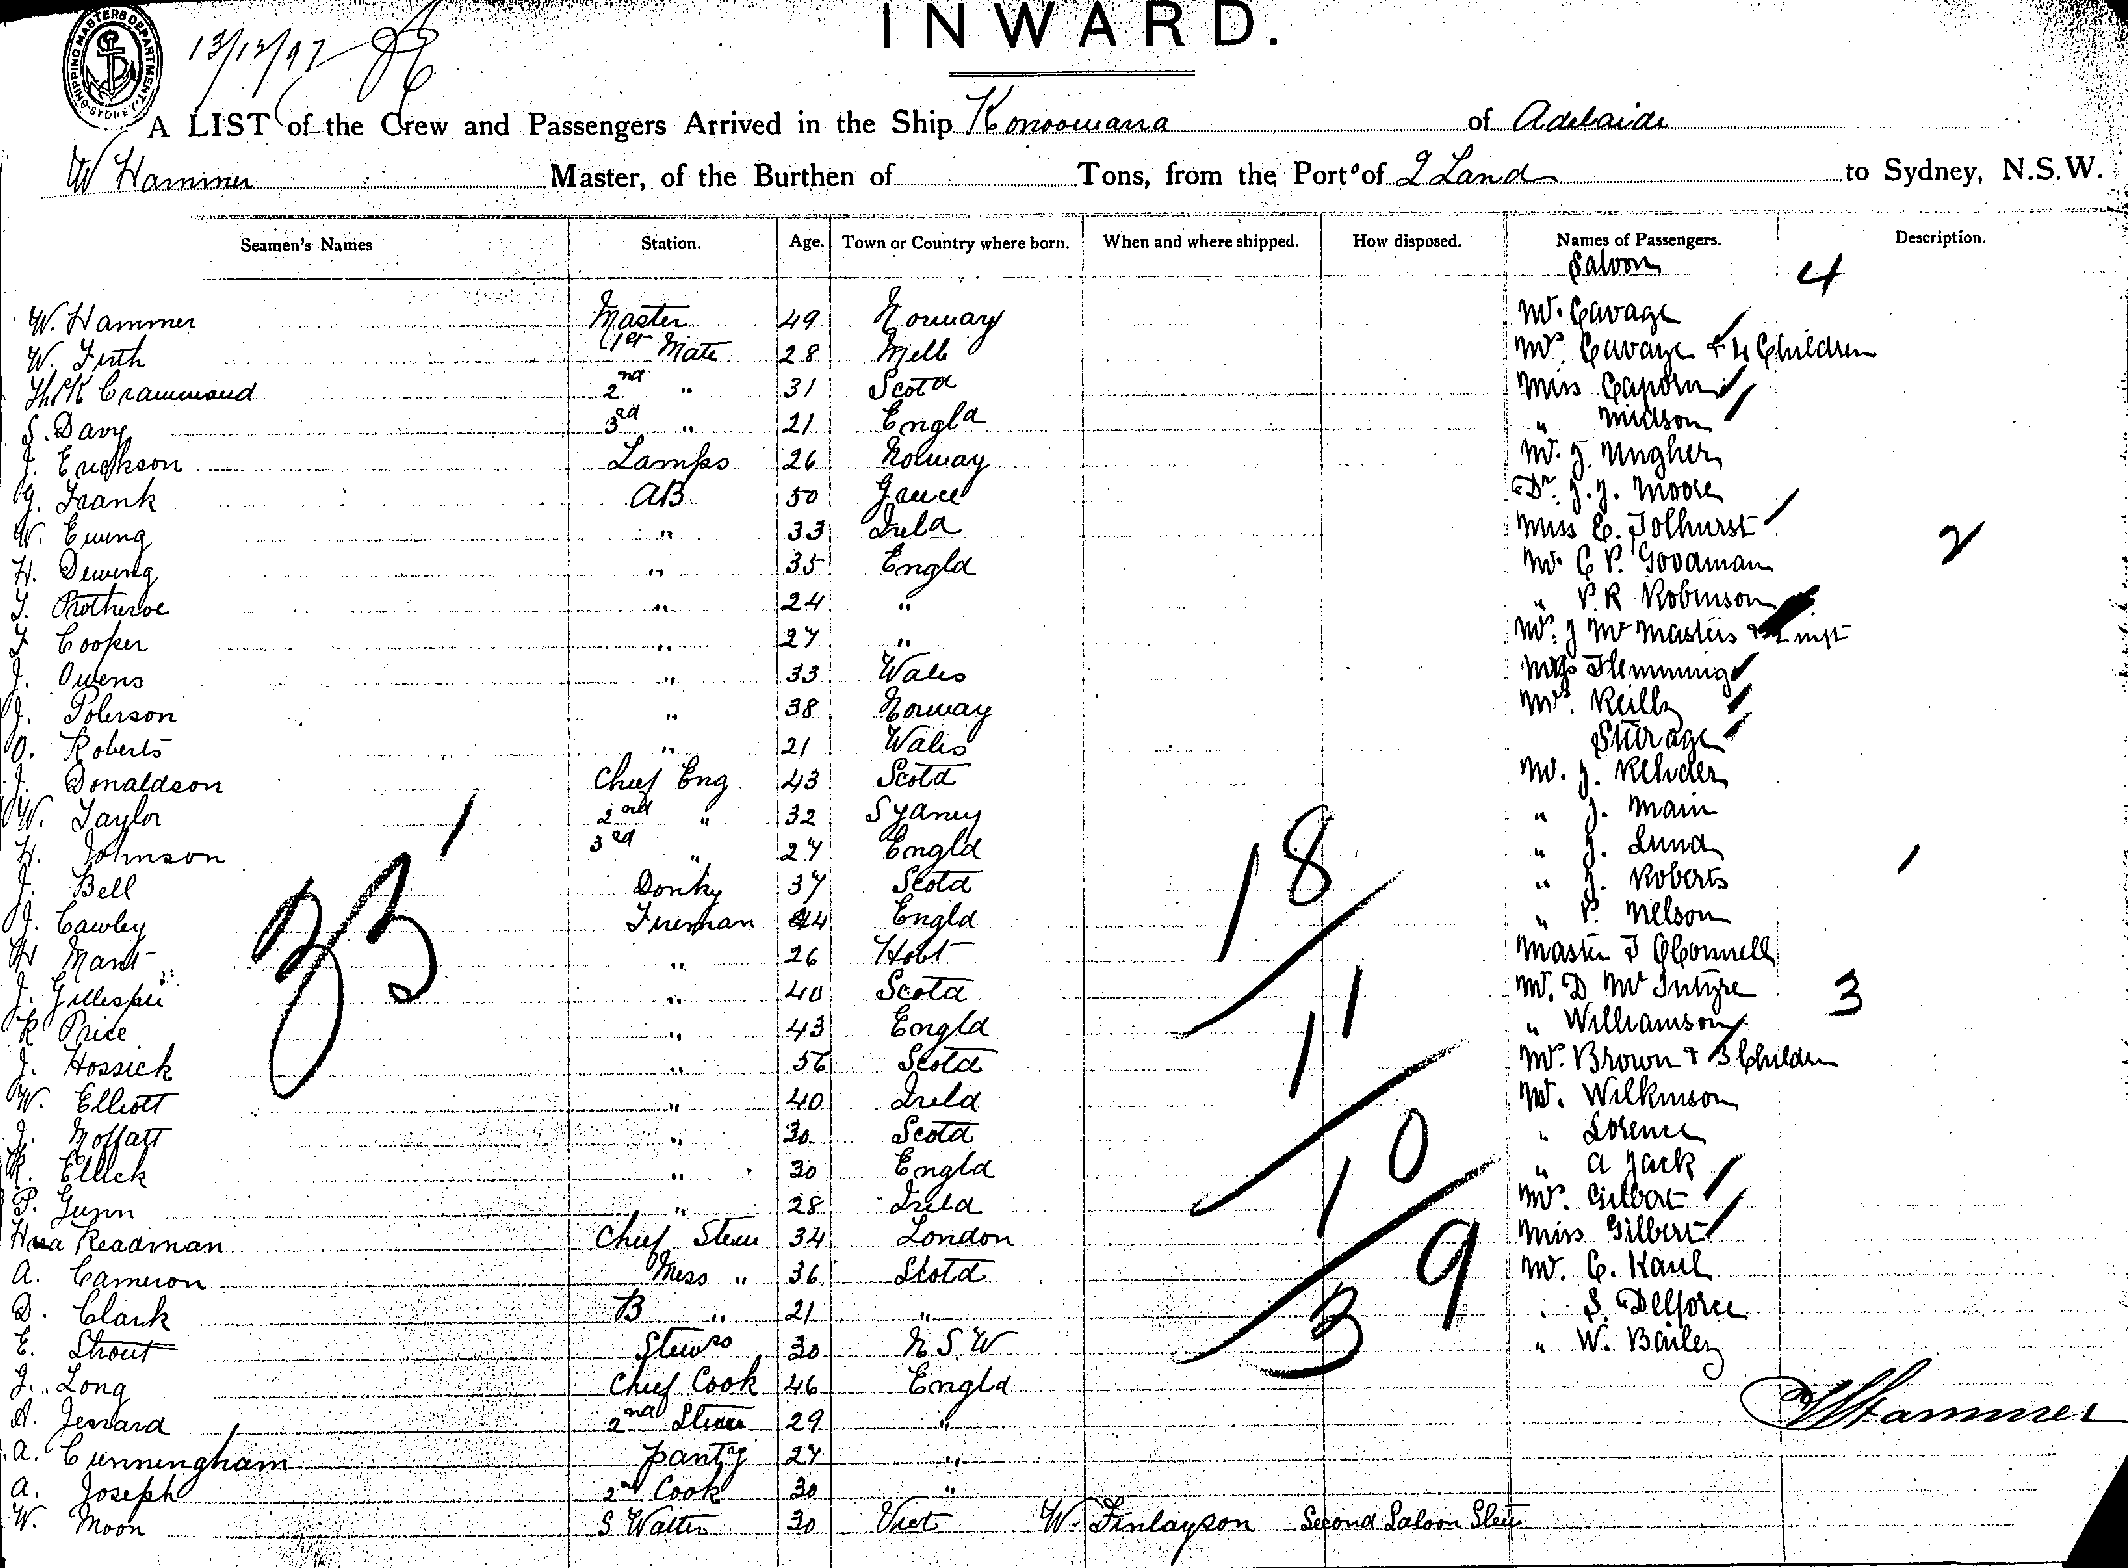 SHIPPING MASTERS DEPARTMENT SYDNEY
13/12/97
INWARD.
A LIST of the Crew and Passengers Arrived in the Ship Konoowarra of Adelaide
W Hammer Master, of the Burthen of Tons, from the Port of Q Land to Sydney, N.S.W.
Seamen's Names Station. Age. Town or Country where born. When and where shipped. How disposed. Names of Passengers. Description.
Saloon 4
W. Hammer Master 49 Norway Mr. Cavage
W. Firth 1st Mate 28 Melb Mrs. Cavage & 4 Children
Crammond 2nd " 31 Scotd Miss Caporn
S. Davy 3rd " 21 Engld " Midson
J. Erickson Lamps 26 Norway Mr. J. Ungher
G. Frank AB 50 Greece Dr. J. J. Moore
W. Ewing " 33 Ireld Miss E. Tolhurst
H. Dewing " 35 Engld Mr. C P. Goodman 2
T. Protheroe " 24 " " P. R Robinson
F Cooper " 27 " Mrs. J Mc Masters & Inft
J. Owens " 33 Wales Flemming
J. Peterson " 38 Norway Mrs. Reilly
O. Roberts " 21 Wales Steerage
J. Donaldson Chief Eng 43 Scotd Mr. J.
W. Taylor 2nd " 32 Sydney " J. Main
H. Johnson 3rd " 27 Engld " J. Lund 1
J. Bell Donky 37 Scotd " J. Roberts
J. Cawley Fireman 44 Engld " P. Nelson
H Mant " 26 Hobt Master T O'Connell
J. Gillespie " 40 Scotd Mr. D Mc Intyre 3
R Price " 43 Engld " Williamson
J. Hossick " 56 Scotd Mr. Brown & 3 Children
W. Elliott " 40 Ireld Mr. Wilkinson
J. Moffatt " 30 Scotd " Lorence
R. Ellick " 30 Engld " A Jack
P. Gunn " 28 Ireld Mrs. Gilbert
Readman Chief Stew 34 London Miss Gilbert
A. Cameron Mess " 36 Scotd Mr. C. Kaul
D. Clark B " 21 " " S. Delforce
E. Strout Stewss 30 N S W " W. Bailey
J. Long Chief Cook 46 Engld
A. Jerrard 2nd Stew 29 " W Hammer
A. Cunningham Pantry 27 "
A. Joseph 2nd Cook 30 "
W. Moon S Waiter 30 Vict W. Finlayson Second Saloon Stew
33
18
11
10
9
3